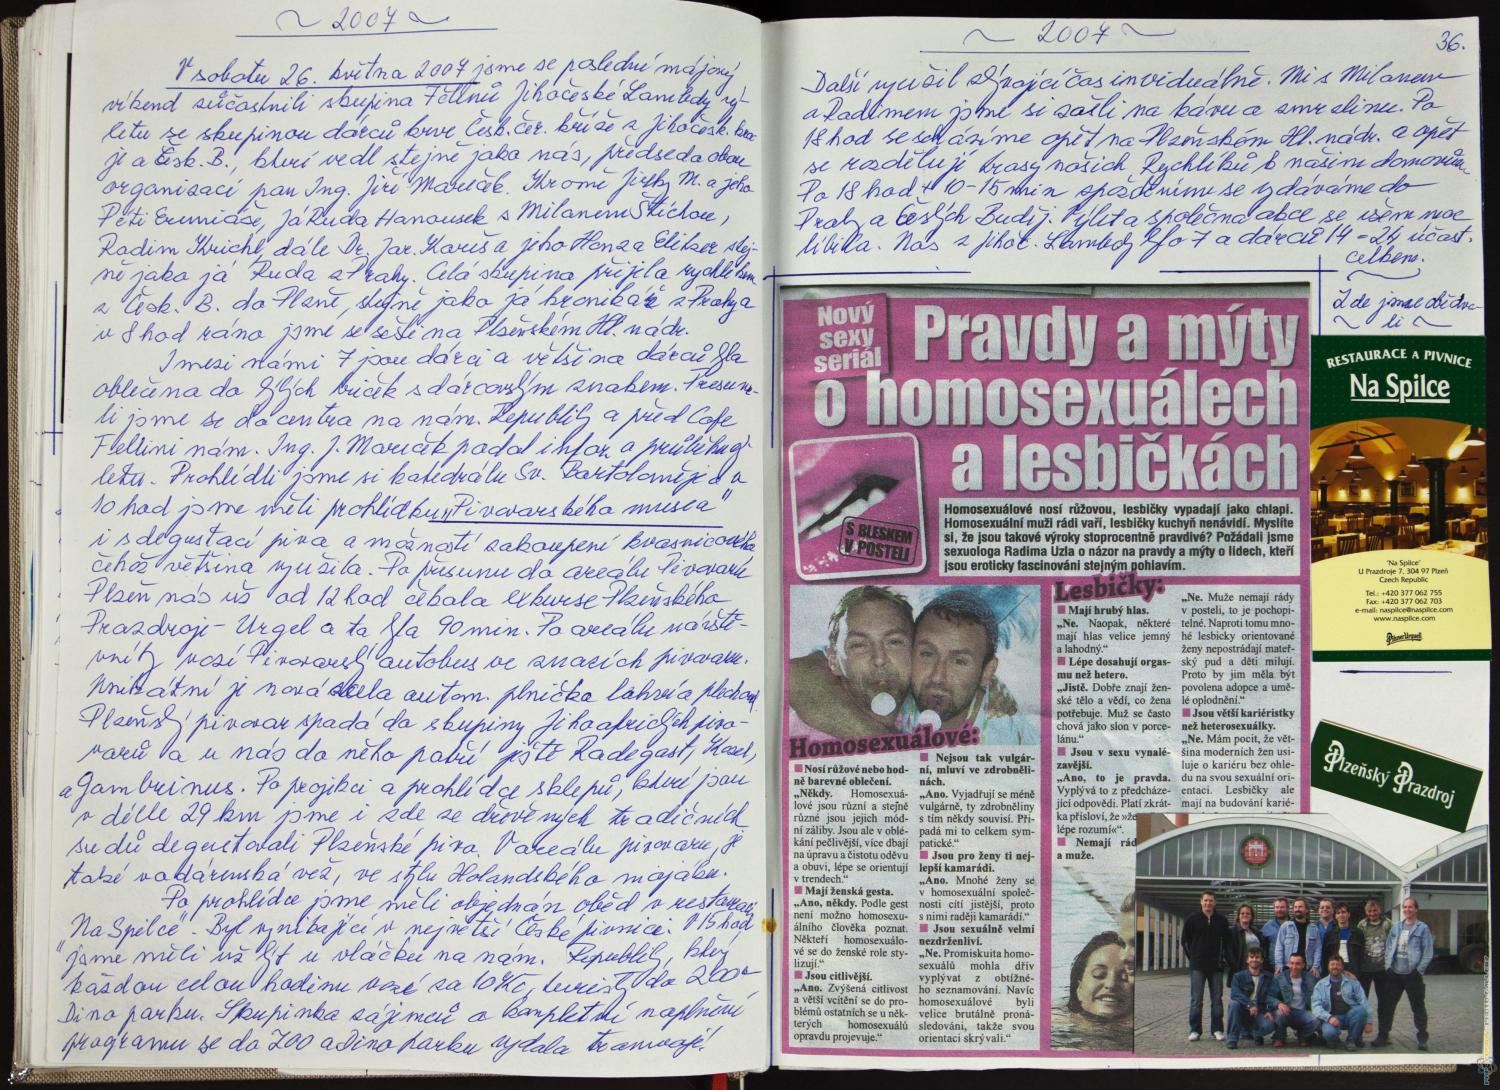 ~ 2007 ~
V sobotu 26. května 2007 jsme se poslední májový
víkend súčastnili skupina Féllinů Jihočeské Lambdy vý-
letu se skupinou dárců krve Česk. čer. kříže z Jihočesk. kra-
je a Česk. B., který vedl stejně jako nás, předseda obou
organizací pan Ing. Jiří Mareček. Kromě Jirky M. a jeho
Péti Eremiáše, já Ruda Hanousek s Milanem Štichou,
Radim Krichl, dále Dr. Jar. Kariš a jeho Honza Elitzer stej-
ně jako já Ruda z Prahy. Celá skupina přijela rychlíkem
z Česk. B. do Plzně, stejně jako já kronikář z Prahy a
v 8 hod ráno jsme se sešli na Plzeňském Hl. nádr.
I mezi námi 7 jsou dárci a většina dárců byla
oblečena do bílých triček s dárcovským znakem. Přesunu-
li jsme se do centra na nám. Republiky a před Cafe
Fellini nám. Ing. J. Mareček podal infor. o průběhu vý-
letu. Prohlídli jsme si katedrálu Sv. Bartoloměje a v
10 hod jsme měli prohlídku „Pivovarského musea"
i s degustací piva a možností zakoupení kvasnicového
čehož většina využila. Po přesunu do areálu Pivovaru
Plzeň nás už od 12 hod čekala exkurse Plzeňského
Prazdroje - Urgel a ta byla 90 min. Po areálu návště-
vníky vozí Pivovarský autobus ve znacích pivovaru.
Unikátní je nová automat. plnička láhví a plechov.
Plzeňský pivovar spadá do skupiny Jihoafrických pivo-
varů a u nás do něho patří ještě Radegast, Kozel,
a Gambrinus. Po projekci a prohlídce sklepů, které jsou
v délce 29 km jsme i zde ze dřevěných tradičních
sudů degustovali Plzeňské pivo. V areálu pivovaru je
také vodárenská věž, ve stylu Holandského majáku.
Po prohlídce jsme měli objednán oběd v restauraci
"Na Spilce". Byl vynikající v největší České pivnici. V 15 hod
jsme měli už být u vláčku na nám. Republiky, který
každou celou hodinu vozí za 10 Kč, turisty do ZOO a
Dino parku. Skupinka zájemců o kompletní naplnění
programu se do ZOO a Dino parku vydala tramvají.
~ 2007 ~
36.
Další využil zbývající čas inviduálně. Mi s Milanem
a Radimem jsme si zašli na kávu a zmrzlinu. Po
18 hod se scházíme opět na Plzeňském Hl. nádr. a opět
se rozdělují trasy našich Rychlíků k našim domovům.
Po 18 hod + 10-15 min zpožděním se vydáváme do
Prahy a Českých Buděj. Výlet a společná akce se všem moc
líbila. Nás z Jihoč. Lambdy bylo 7 a dárců 14 = 21 účast.
celkem.
Zde jsme obědva-
~ li ~
Nový
sexy
seriál
Pravdy a mýty
o homosexuálech
a lesbičkách
S BLESKEM
V POSTELI
Homosexuálové nosí růžovou, lesbičky vypadají jako chlapi.
Homosexuální muži rádi vaří, lesbičky kuchyň nenávidí. Myslíte
si, že jsou takové výroky stoprocentně pravdivé? Požádali jsme
sexuologa Radima Uzla o názor na pravdy a mýty o lidech, kteří
jsou eroticky fascinováni stejným pohlavím.
Homosexuálové:
Nosí růžové nebo hod-
ně barevné oblečení.
„Někdy. Homosexuá-
lové jsou různí a stejně
různé jsou jejich mód-
ní záliby. Jsou ale v oblé-
kání pečlivější, více dbají
na úpravu a čistotu oděvu
a obuvi, lépe se orientují
v trendech."
Mají ženská gesta.
„Ano, někdy. Podle gest
není možno homosexu-
álního člověka poznat.
Někteří homosexuálo-
vé se do ženské role sty-
lizují."
Jsou citlivější.
„Ano. Zvýšená citlivost
a větší vcítění se do pro-
blémů ostatních se u něk-
terých homosexuálů
opravdu projevuje."
Nejsou tak vulgár-
ní, mluví ve zdrobněli-
nách.
„Ano. Vyjadřují se méně
vulgárně, ty zdrobněliny
s tím někdy souvisí. Při-
padá mi to celkem sym-
patické."
Jsou pro ženy ti nej-
lepší kamarádi.
„Ano. Mnohé ženy se
v homosexuální společ-
nosti cítí jistější, proto
s nimi raději kamarádí."
Jsou sexuálně velmi
nezdrženliví.
„Ne. Promiskuita homo-
sexuálů mohla dřív
vyplývat z obtížné-
ho seznamování. Navíc
homosexuálové byli
velice brutálně proná-
sledováni, takže svou
orientaci skrývali."
Lesbičky:
Mají hrubý hlas.
„Ne. Naopak, některé
mají hlas velice jemný
a lahodný."
Lépe dosahují orgas-
mu než hetero.
„Jistě. Dobře znají žen-
ské tělo a vědí, co žena
potřebuje. Muž se často
chová jako slon v porce-
lánu."
Jsou v sexu vynalé-
zavější.
„Ano, to je pravda.
Vyplývá to z předcháze-
jící odpovědi. Platí zkrát-
ka přísloví, že »že
lépe rozumí«".
Nemají rád
a muže.
„Ne. Muže nemají rády
v posteli, to je pochopi-
telné. Naproti tomu mno-
hé lesbicky orientované
ženy nepostrádají mateř-
ský pud a děti milují.
Proto by jim měla být
povolena adopce a umě-
lé oplodnění."
Jsou větší kariéristky
než heterosexuálky.
„Ne. Mám pocit, že vět-
šina moderních žen usi-
luje o kariéru bez ohle-
du na svou sexuální ori-
entaci. Lesbičky ale
mají na budování karié-
RESTAURACE A PIVNICE
Na Spilce
'Na Spilce'
U Prazdroje 7, 304 97 Plzeň
Czech Republic
Tel.: +420 377 062 755
Fax: +420 377 062 703
e-mail: naspilce@naspilce.com
www.naspilce.com
Pilsner Urquell
Plzeňský Prazdroj